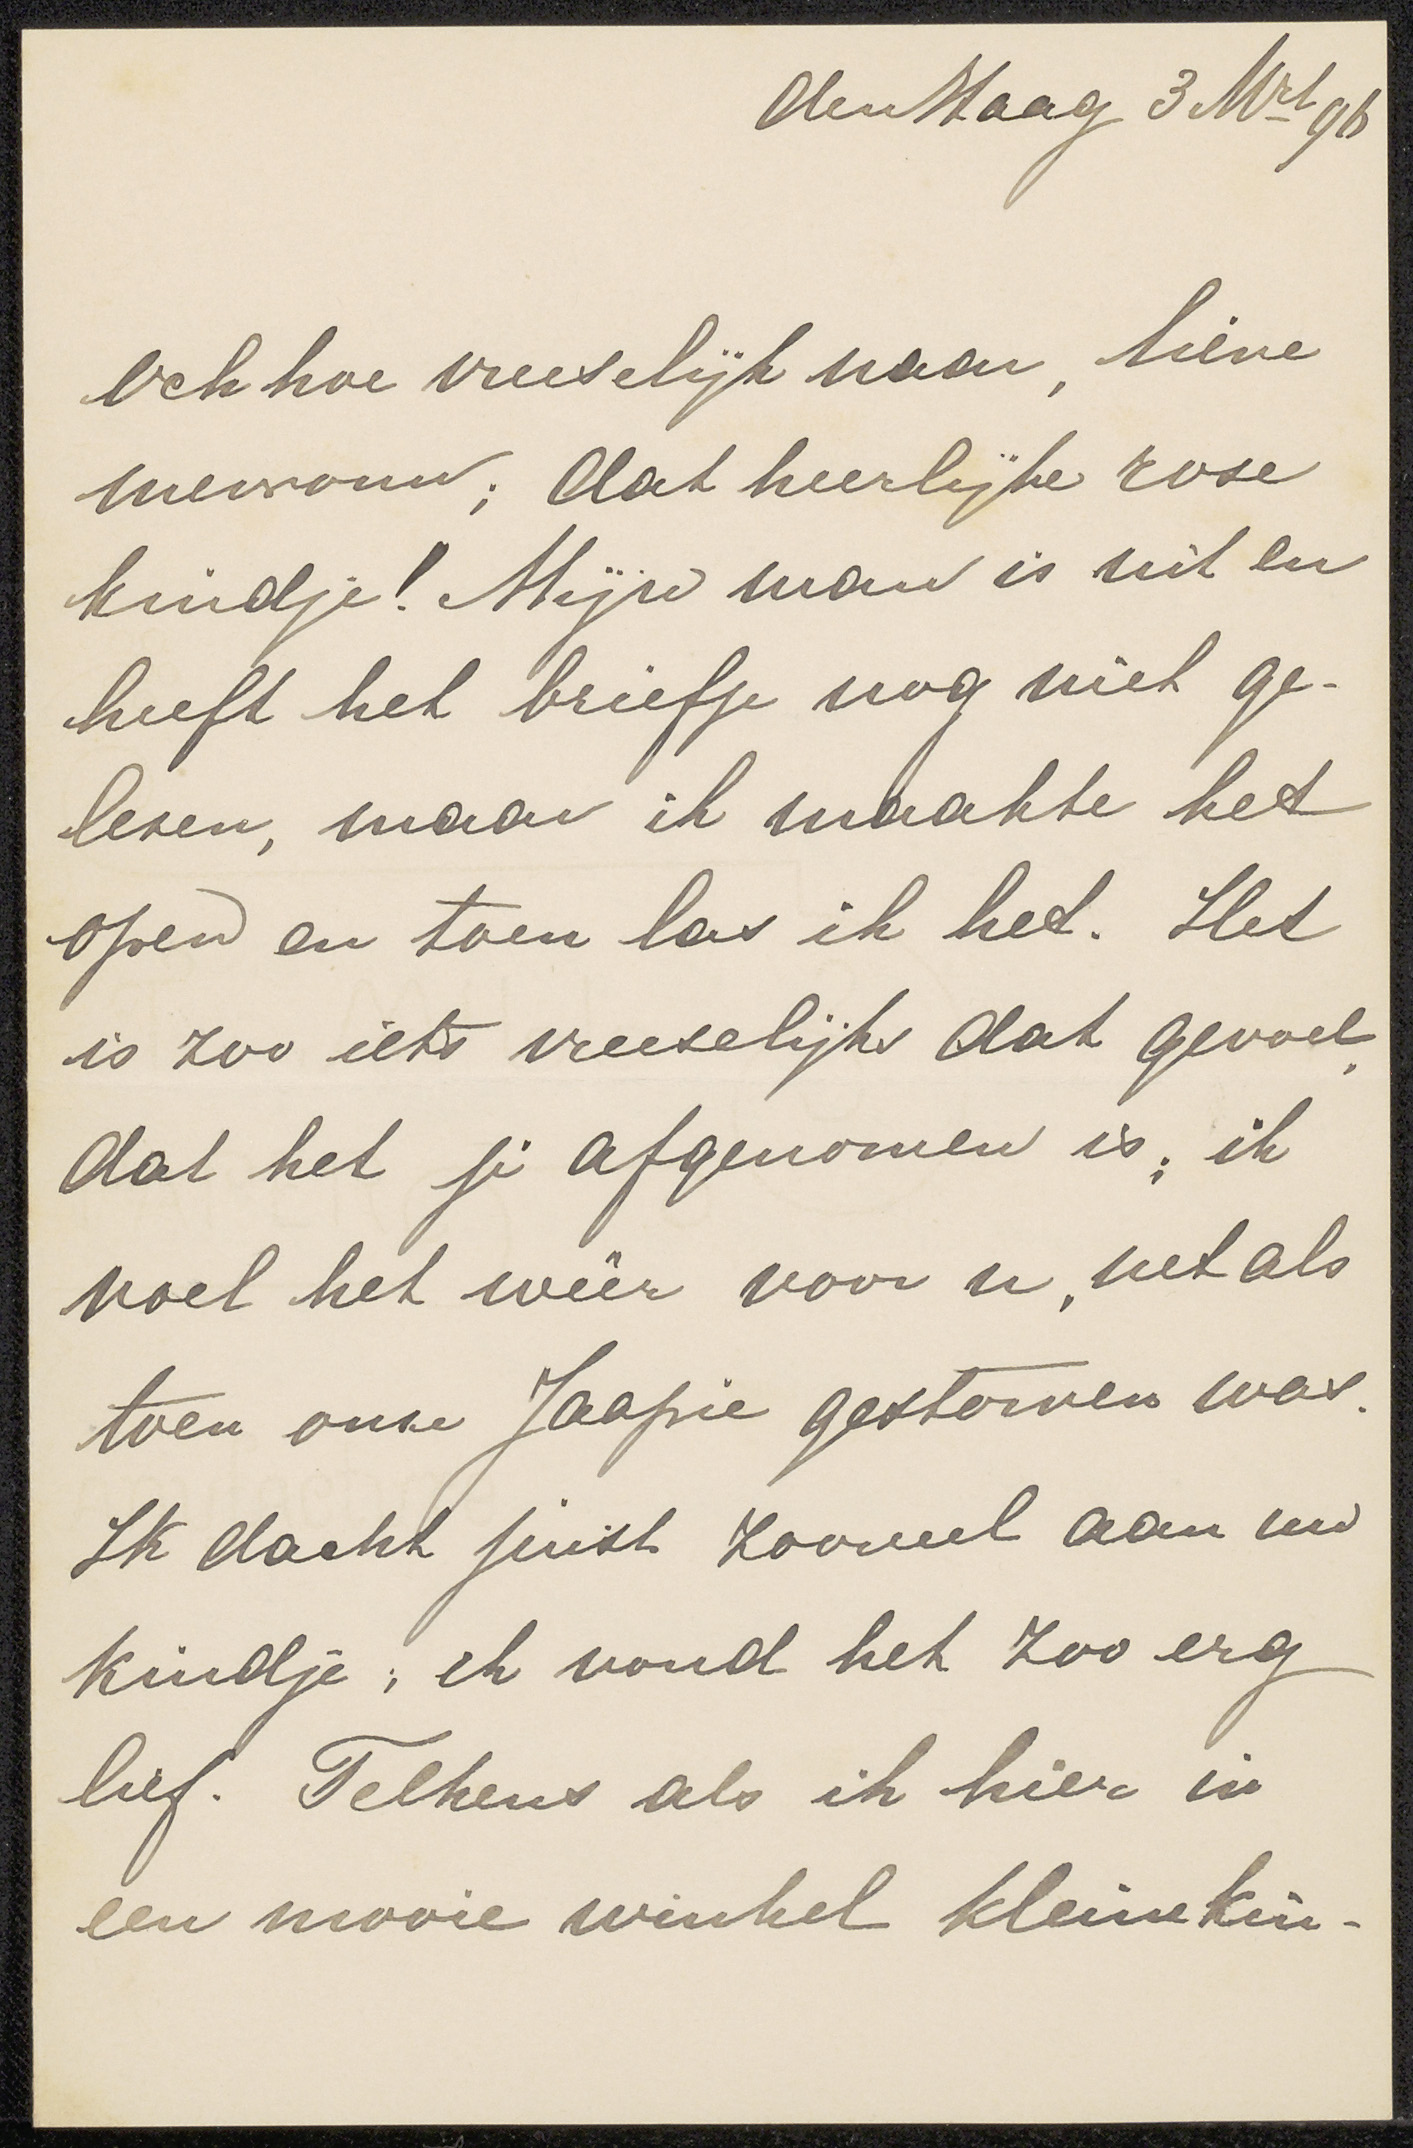 den Haag 3 Mrt 96
Och hoe vreeselijk naar, lieve
mevrouw; dat heerlijke rose
kindje! Mijn man is uit en
heeft het briefje nog niet ge-
lezen, maar ik maakte het
open en toen las ik het. Het
is zoo iets vreeselijks dat gevoel,
dat het je afgenomen is; ik
voel het weêr voor u, net als
toen onze Jaapie gestorven was.
Ik dacht juist zooveel aan uw
kindje; ik vond het zoo erg
lief. Telkens als ik hier in
een mooie winkel kleine kin-